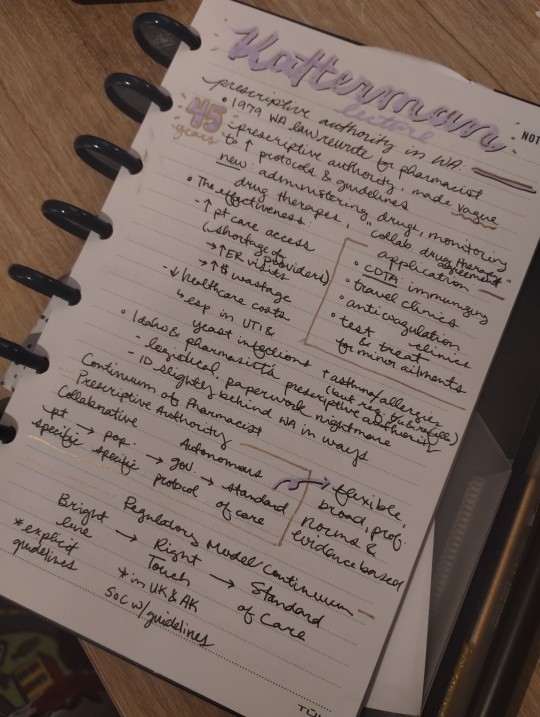 Katterman
lecture
NOT
prescriptive authority in WA:
45
years
• 1979 WA law rewrite for pharmacist
- prescriptive authority, made vague
to ↑ protocols & guidelines
new: administering drugs, monitoring
drug therapies, "collab drug therapy
agreement"
• The effectiveness:
- ↑ pt care access
(shortage of
providers)
→ ↑ ER visits
→ ↑ $ wastage
- ↓ healthcare costs
↳ esp. in UTI &
yeast infections + asthma/allergies
application
• CDTA: immunizing
• travel clinics
• anticoagulation
clinics
• test & treat
for minor ailments
• Idaho & pharmacists prescriptive authority
- less ideal, paperwork nightmare
- ID slightly behind WA in ways
Continuum of Pharmacist
Prescriptive Authority
Collaborative
Autonomous
pt → pop. → gov. → standard
specific specific protocol of care
→ flexible,
broad, prof.
norms &
evidence based
Regulatory Model Continuum
Bright line → Right Touch → Standard of Care
*explicit
guidelines
*in UK & AK
SOC w/guidelines